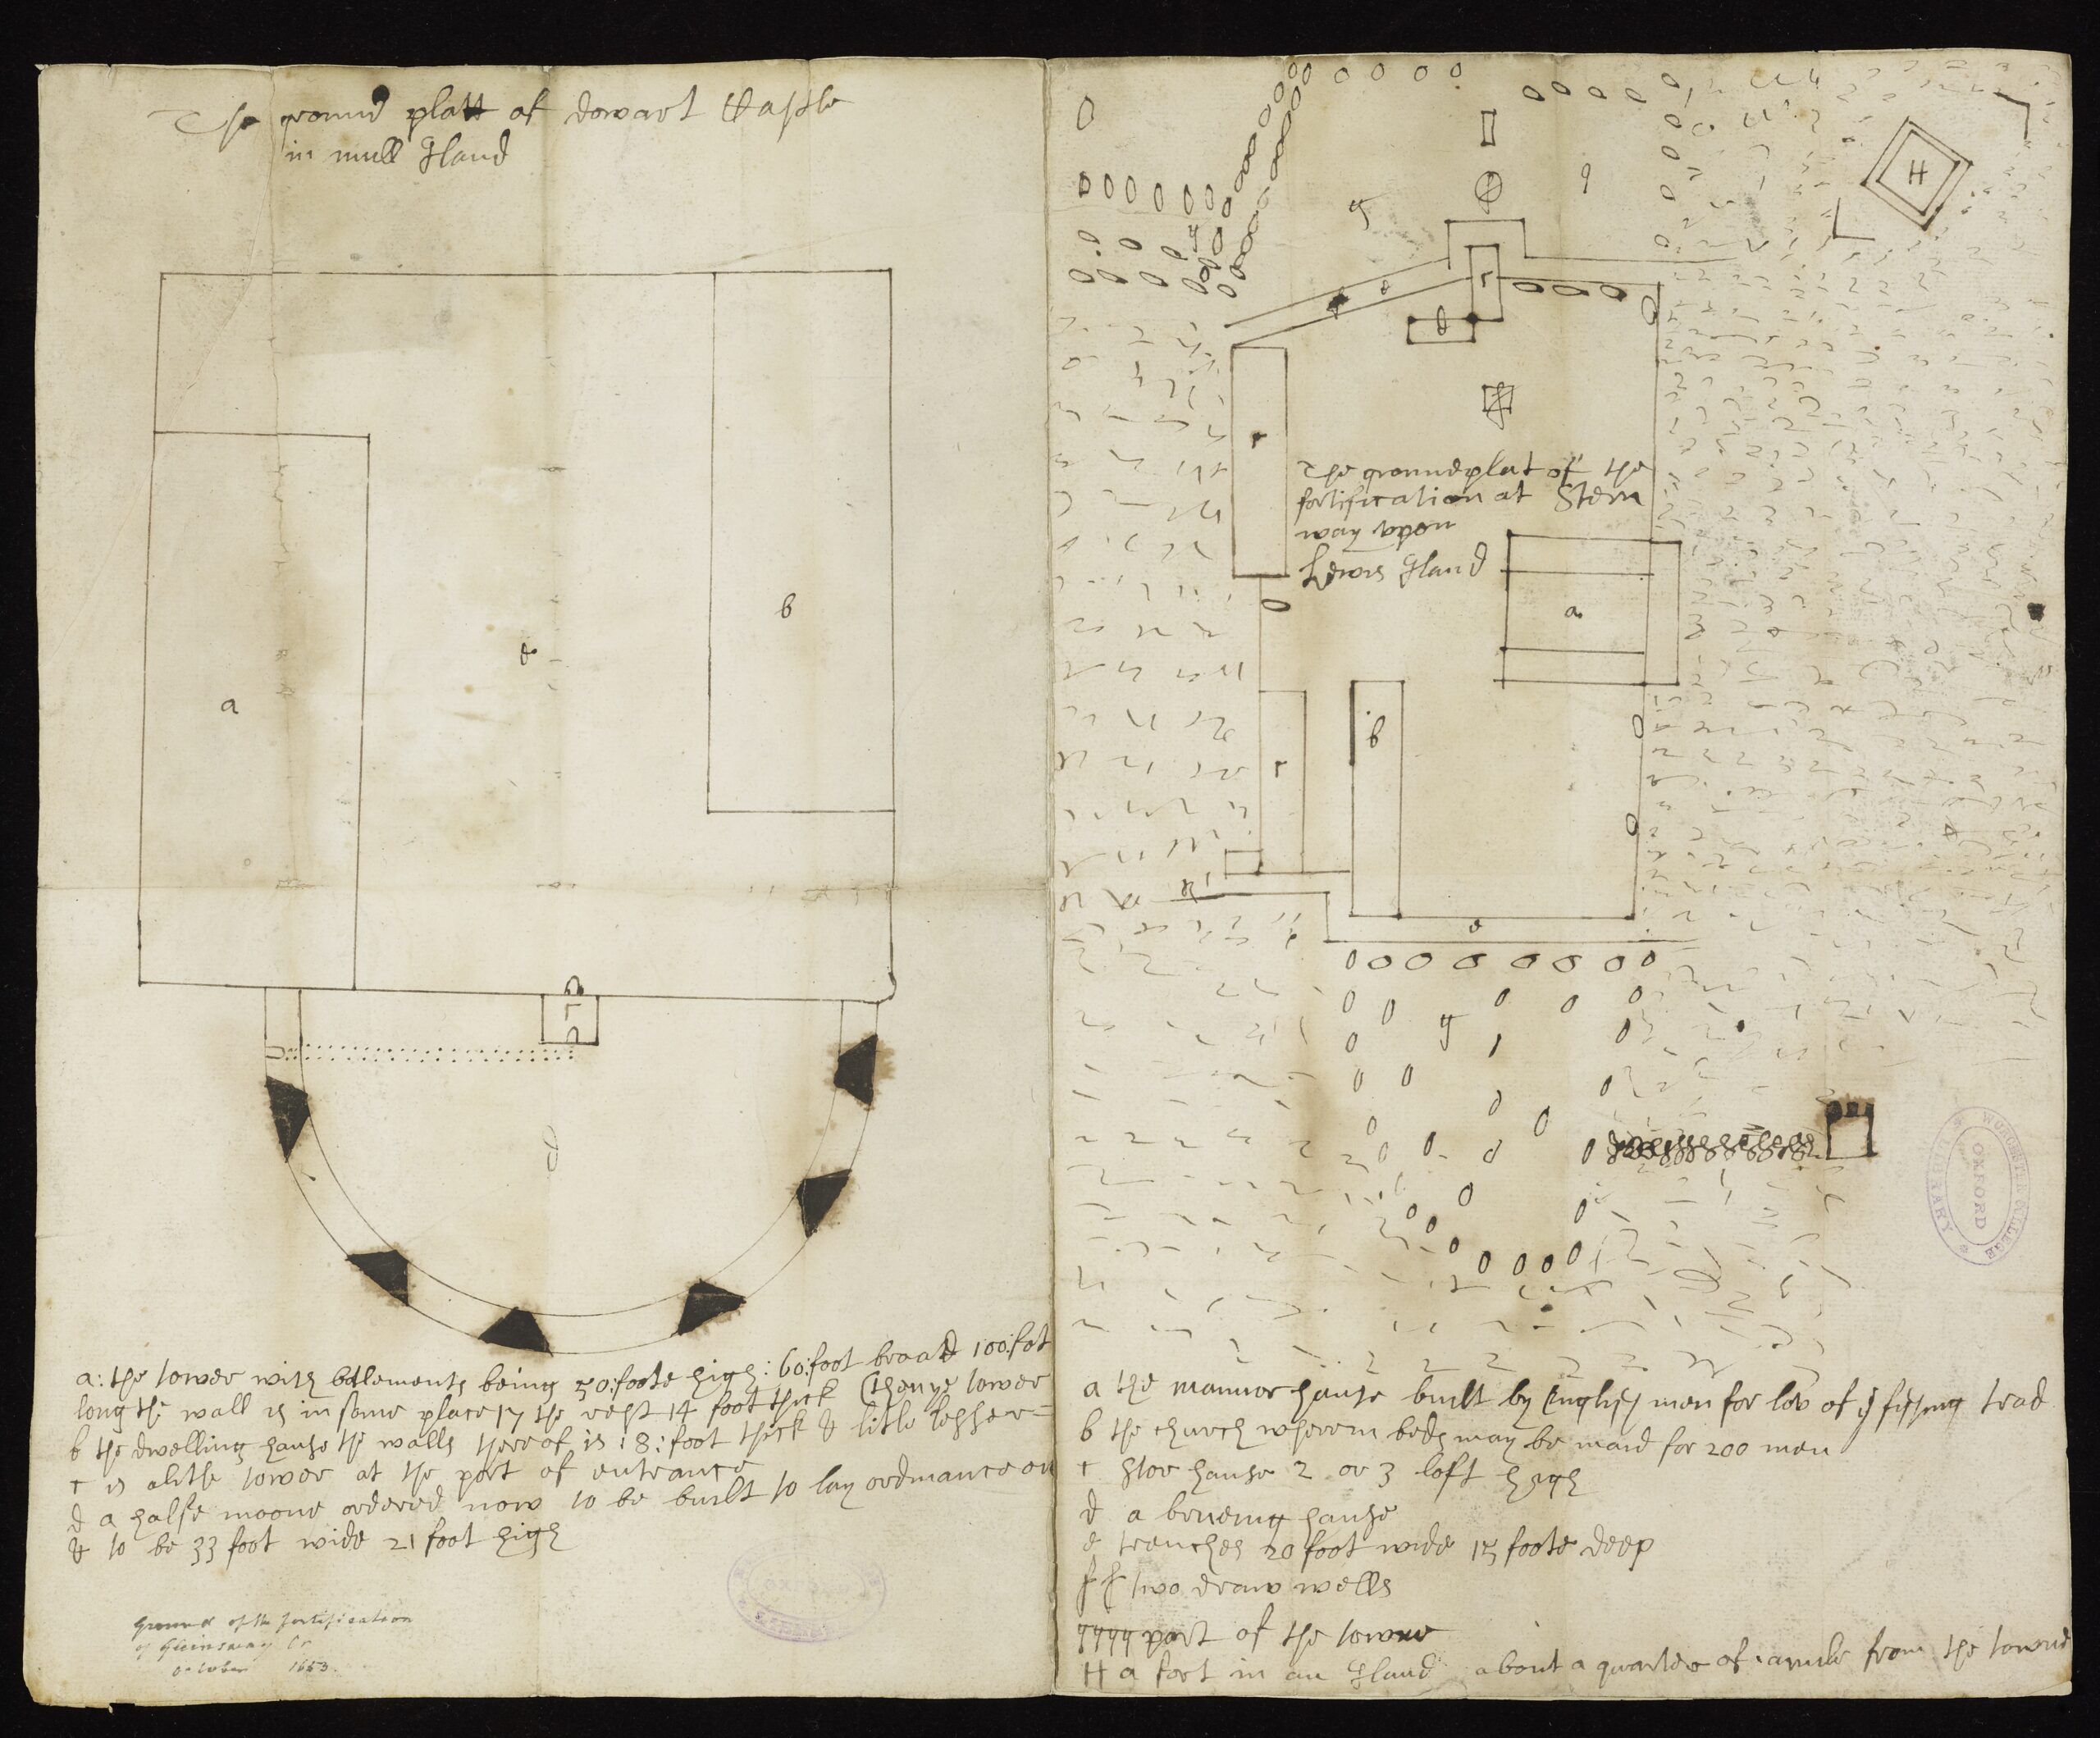 The ground platt of dowart Castle
in mull Iland
a
b
e
c
d
a: the tower with batlements being 50: foote high: 60: foot broad 100: fot
long the wall is in some place 17 the rest 14 foot thick
b the dwelling house the walls thereof is : 8: foot thick & litle lesser =
tower
c is a litle tower at the port of entrance
d a halfe moone ordered now to be built to lay ordinance on
& to be 33 foot wide 21 foot high
Ground of the fortification
of
October 1653.
H
g
g
g
e
c
d
c
The groundplat of the
fortification at Storn
way upon
Lewis Iland
a
b
c
e
g
WORCESTER COLLEGE
OXFORD
LIBRARY
a the mannor house built by English men for lov of ye fishing trad
b the church wherein beds may be maid for 200 men
c stor house 2 or 3 loft high
d a breuing house
e trenches 20 foot wide 15 foote deep
f f two draw wells
gggg part of the towne
H a fort in an Iland about a quarter of a mile from the towne